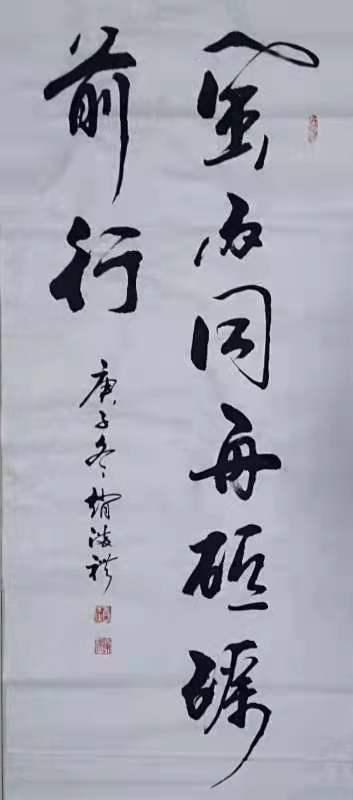 風雨同舟砥礪
前行
庚子冬